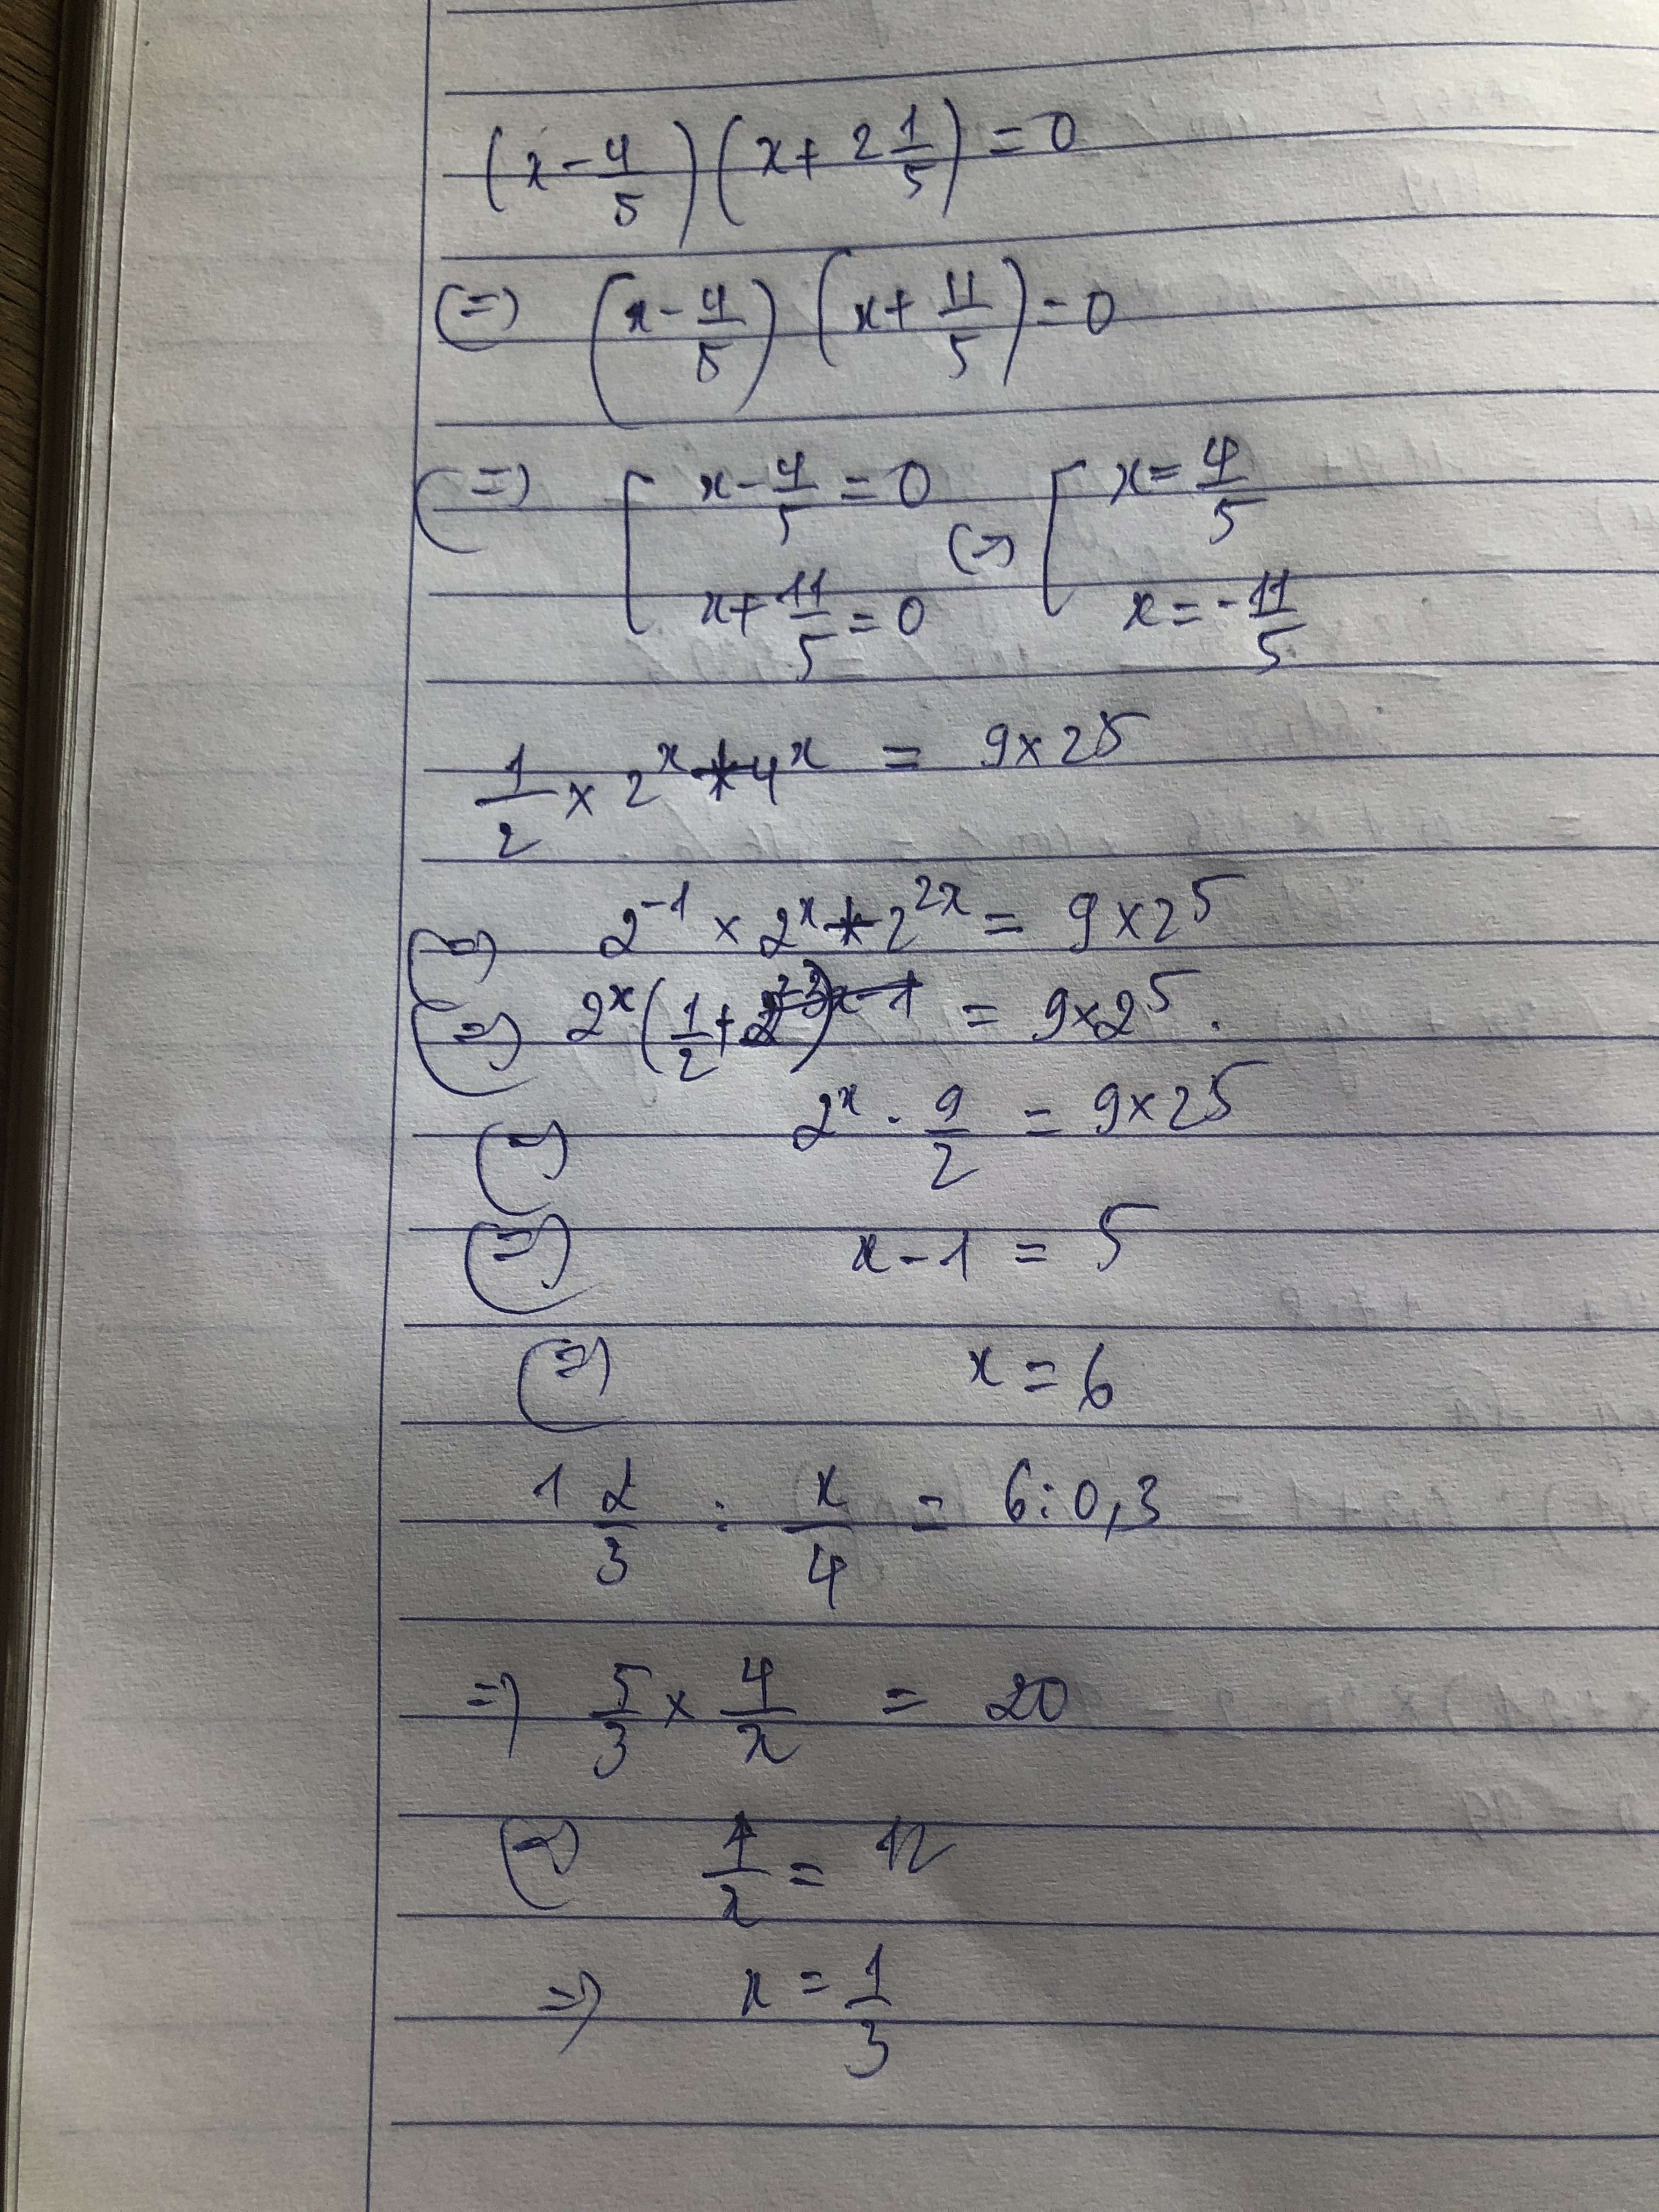 (x - 4/5)(x + 2 1/5) = 0
(=) (x - 4/5)(x + 11/5) = 0
(=) [ x - 4/5 = 0 (=) [ x = 4/5
x + 11/5 = 0 x = -11/5
1/2 × 2^x + 4^x = 9 × 2^5
(=) 2^-1 × 2^x + 2^2x = 9 × 2^5
(=) 2^x (1/2 + 2^2) = 9 × 2^5.
(=) 2^x . 9/2 = 9 × 2^5
(=) x - 1 = 5
(=) x = 6
1 2/3 : x/4 = 6 : 0,3
=) 5/3 × 4/x = 20
(=) 4/x = 12
=) x = 1/3